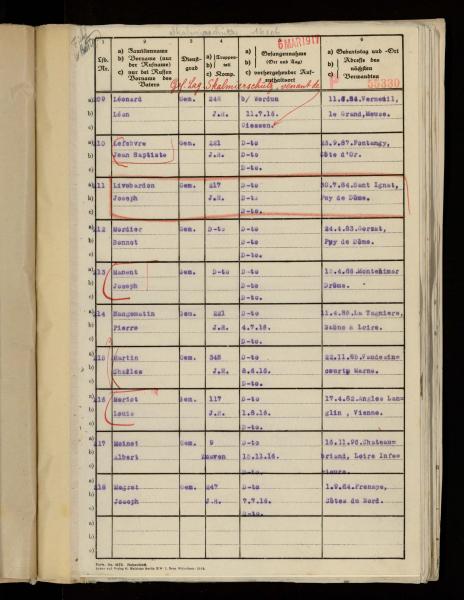 6 MAR 1917
P 55330
1 2 3 4 5 6
Lfd. No.
a) Familienname
b) Vorname (nur der Rufname)
c) nur bei Russen Vorname des Vaters
Dienstgrad
a) Truppenteil
b) Komp.
a) Gefangennahme (Ort und Tag)
c) vorhergehender Aufenthaltsort
a) Geburtstag und -Ort
Adresse des nächsten Verwandten
Gef. Lag. Skalmierschütz, venant de
209 Léonard Gem. 248 b/ Verdun 11.6.84.Verneuil,
Léon J.R. 11.7.16. le Grand, Meuse.
Giessen.
210 Lefebvre Gem. 221 D-to 23.9.87.Fontangy,
Jean Baptiste J.R. D-to Côte d'Or.
D-to.
211 Livebardon Gem. 217 D-to 30.7.84.Sant Ignat,
Joseph J.R. D-to Puy de Dôme.
D-to.
212 Mordier Gem. D-to D-to 24.4.83.Gerzat,
Bonnet D-to Puy de Dôme.
D-to.
213 Manent Gem. D-to D-to 12.4.86.Montelimar
Joseph D-to Drôme.
D-to.
214 Mangematin Gem. 221 D-to 11.4.89.La Tagniere,
Pierre J.R. 4.7.16. Saône à Loire.
D-to.
215 Martin Gem. 346 D-to 22.11.89.
Charles J.R. 8.6.16. court Marne.
D-to.
216 Meriot Gem. 117 D-to 17.4.82.Angles Lan=
Louis J.R. 1.8.16. glin , Vienne.
D-to.
217 Moinet Gem. 9 D-to 16.11.96.Chateau=
Albert Zouven 15.11.16. briand, Loire Infe=
D-to. rieure.
218 Magret Gem. 247 D-to 1.9.84.
Joseph J.R. 7.7.16. Côtes du Nord.
D-to.